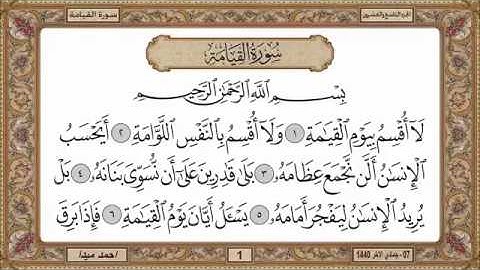 الجزء التاسع والعشرون
سورة القيامة
سُورَةُ القِيَامَةِ
بِسْمِ اللَّهِ الرَّحْمَٰنِ الرَّحِيمِ
لَا أُقْسِمُ بِيَوْمِ الْقِيَامَةِ ١ وَلَا أُقْسِمُ بِالنَّفْسِ اللَّوَّامَةِ ٢ أَيَحْسَبُ
الْإِنسَانُ أَلَّن نَّجْمَعَ عِظَامَهُ ٣ بَلَىٰ قَادِرِينَ عَلَىٰ أَن نُّسَوِّيَ بَنَانَهُ ٤ بَلْ
يُرِيدُ الْإِنسَانُ لِيَفْجُرَ أَمَامَهُ ٥ يَسْأَلُ أَيَّانَ يَوْمُ الْقِيَامَةِ ٦ فَإِذَا بَرِقَ
07 - جمادي الآخر 1440
1